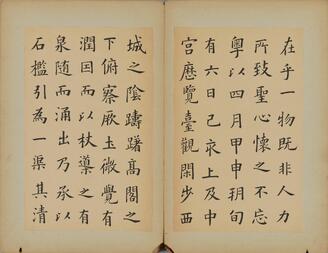 在乎一物既非人力
所致聖心懷之不忘
粵以四月甲申朔旬
有六日己亥上及中
宮歷覽臺觀閑步西
城之陰躊躇高閣之
下俯察厥土微覺有
潤因而以杖導之有
泉隨而涌出乃承以
石檻引為一渠其清